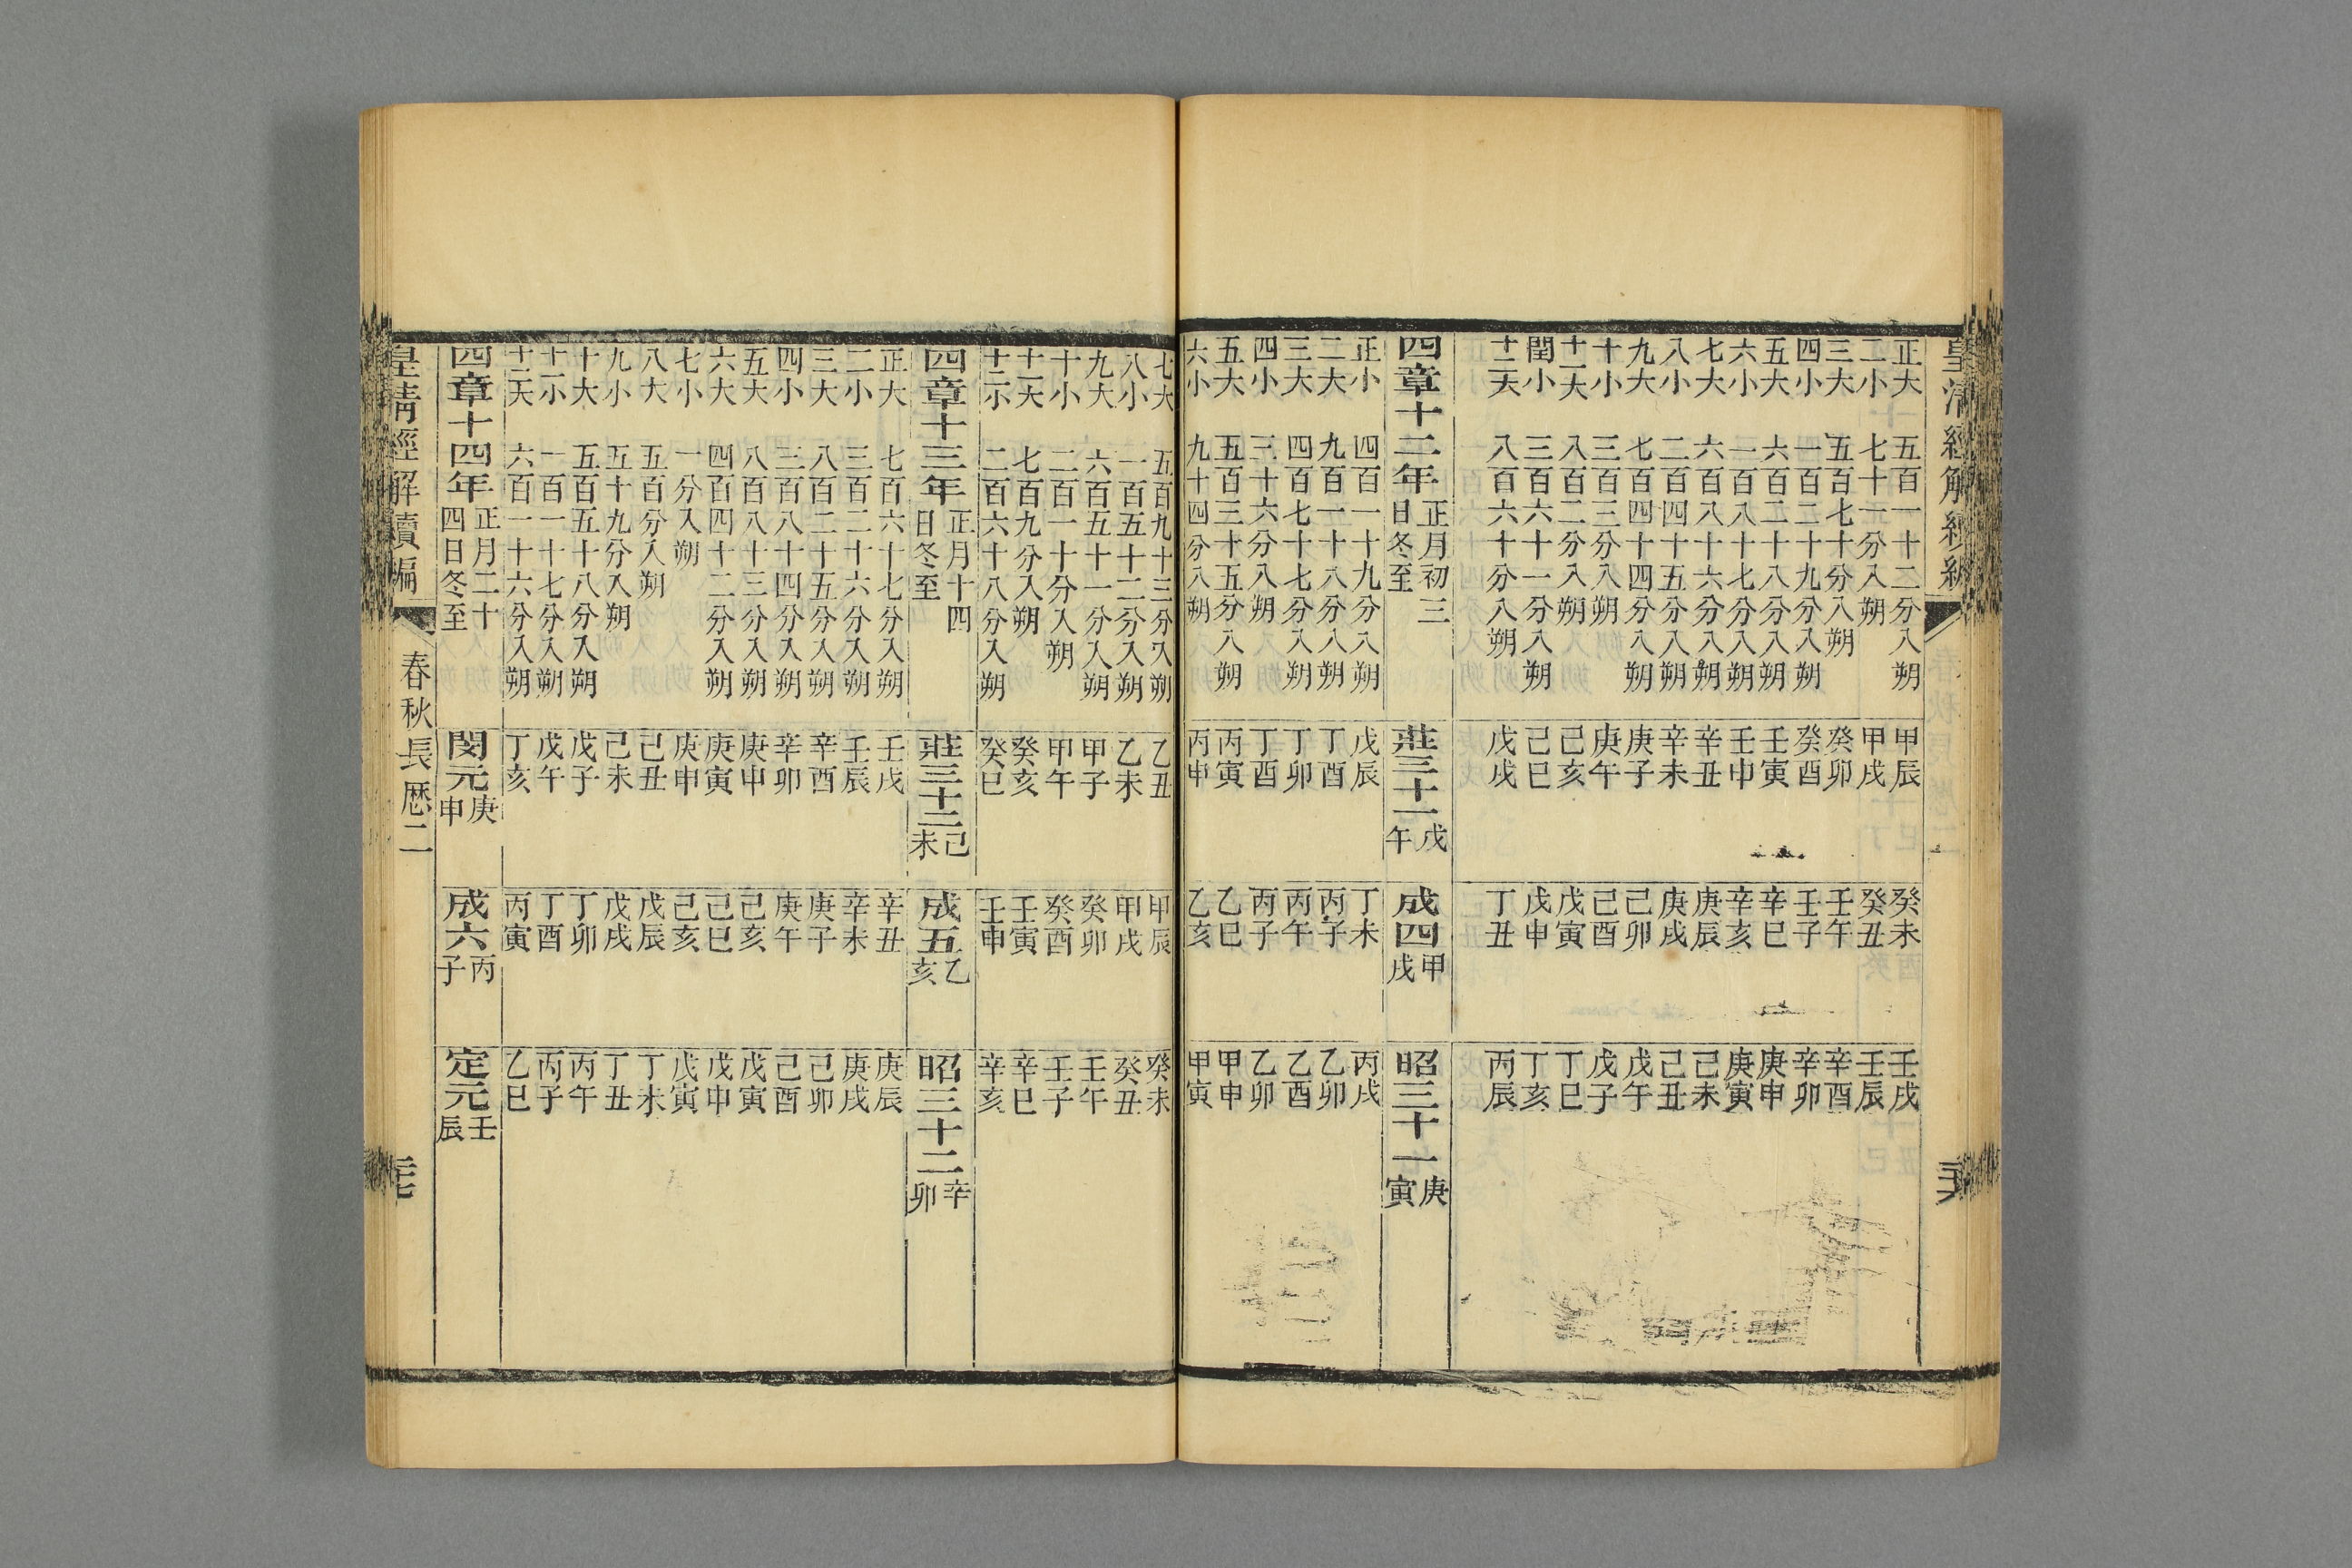 皇清經解續編
正大 五百一十二分入朔 甲辰 癸未 壬戌
二小 七十一分入朔 甲戌 癸丑 壬辰
三大 五百七十分入朔 癸卯 壬午 辛酉
四小 一百二十九分入朔 癸酉 壬子 辛卯
五大 六百二十八分入朔 壬寅 辛巳 庚申
六小 一百八十七分入朔 壬申 辛亥 庚寅
七大 六百八十六分入朔 辛丑 庚辰 己未
八小 二百四十五分入朔 辛未 庚戌 己丑
九大 七百四十四分入朔 庚子 己卯 戊午
十小 三百三分入朔 庚午 己酉 戊子
十一大 八百二分入朔 己亥 戊寅 丁巳
閏小 三百六十一分入朔 己巳 戊申 丁亥
十二大 八百六十分入朔 戊戌 丁丑 丙辰
四章十二年 正月初三日冬至 莊三十一 戊午 成四 甲戌 昭三十一 庚寅
正小 四百一十九分入朔 戊辰 丁未 丙戌
二大 九百一十八分入朔 丁酉 丙子 乙卯
三大 四百七十七分入朔 丁卯 丙午 乙酉
四小 三十六分入朔 丁酉 丙子 乙卯
五大 五百三十五分入朔 丙寅 乙巳 甲申
六小 九十四分入朔 丙申 乙亥 甲寅
七大 五百九十三分入朔 乙丑 甲辰 癸未
八小 一百五十二分入朔 乙未 甲戌 癸丑
九大 六百五十一分入朔 甲子 癸卯 壬午
十小 二百一十分入朔 甲午 癸酉 壬子
十一大 七百九分入朔 癸亥 壬寅 辛巳
十二小 二百六十八分入朔 癸巳 壬申 辛亥
四章十三年 正月十四日冬至 莊三十二 己未 成五 乙亥 昭三十二 辛卯
正大 七百六十七分入朔 壬戌 辛丑 庚辰
二小 三百二十六分入朔 壬辰 辛未 庚戌
三大 八百二十五分入朔 辛酉 庚子 己卯
四小 三百八十四分入朔 辛卯 庚午 己酉
五大 八百八十三分入朔 庚申 己亥 戊寅
六大 四百四十二分入朔 庚寅 己巳 戊申
七小 一分入朔 庚申 己亥 戊寅
八大 五百分入朔 己丑 戊辰 丁未
九小 五十九分入朔 己未 戊戌 丁丑
十大 五百五十八分入朔 戊子 丁卯 丙午
十一小 一百一十七分入朔 戊午 丁酉 丙子
十二大 六百一十六分入朔 丁亥 丙寅 乙巳
四章十四年 正月二十四日冬至 閔元 庚申 成六 丙子 定元 壬辰
皇清經解續編 春秋長厤二